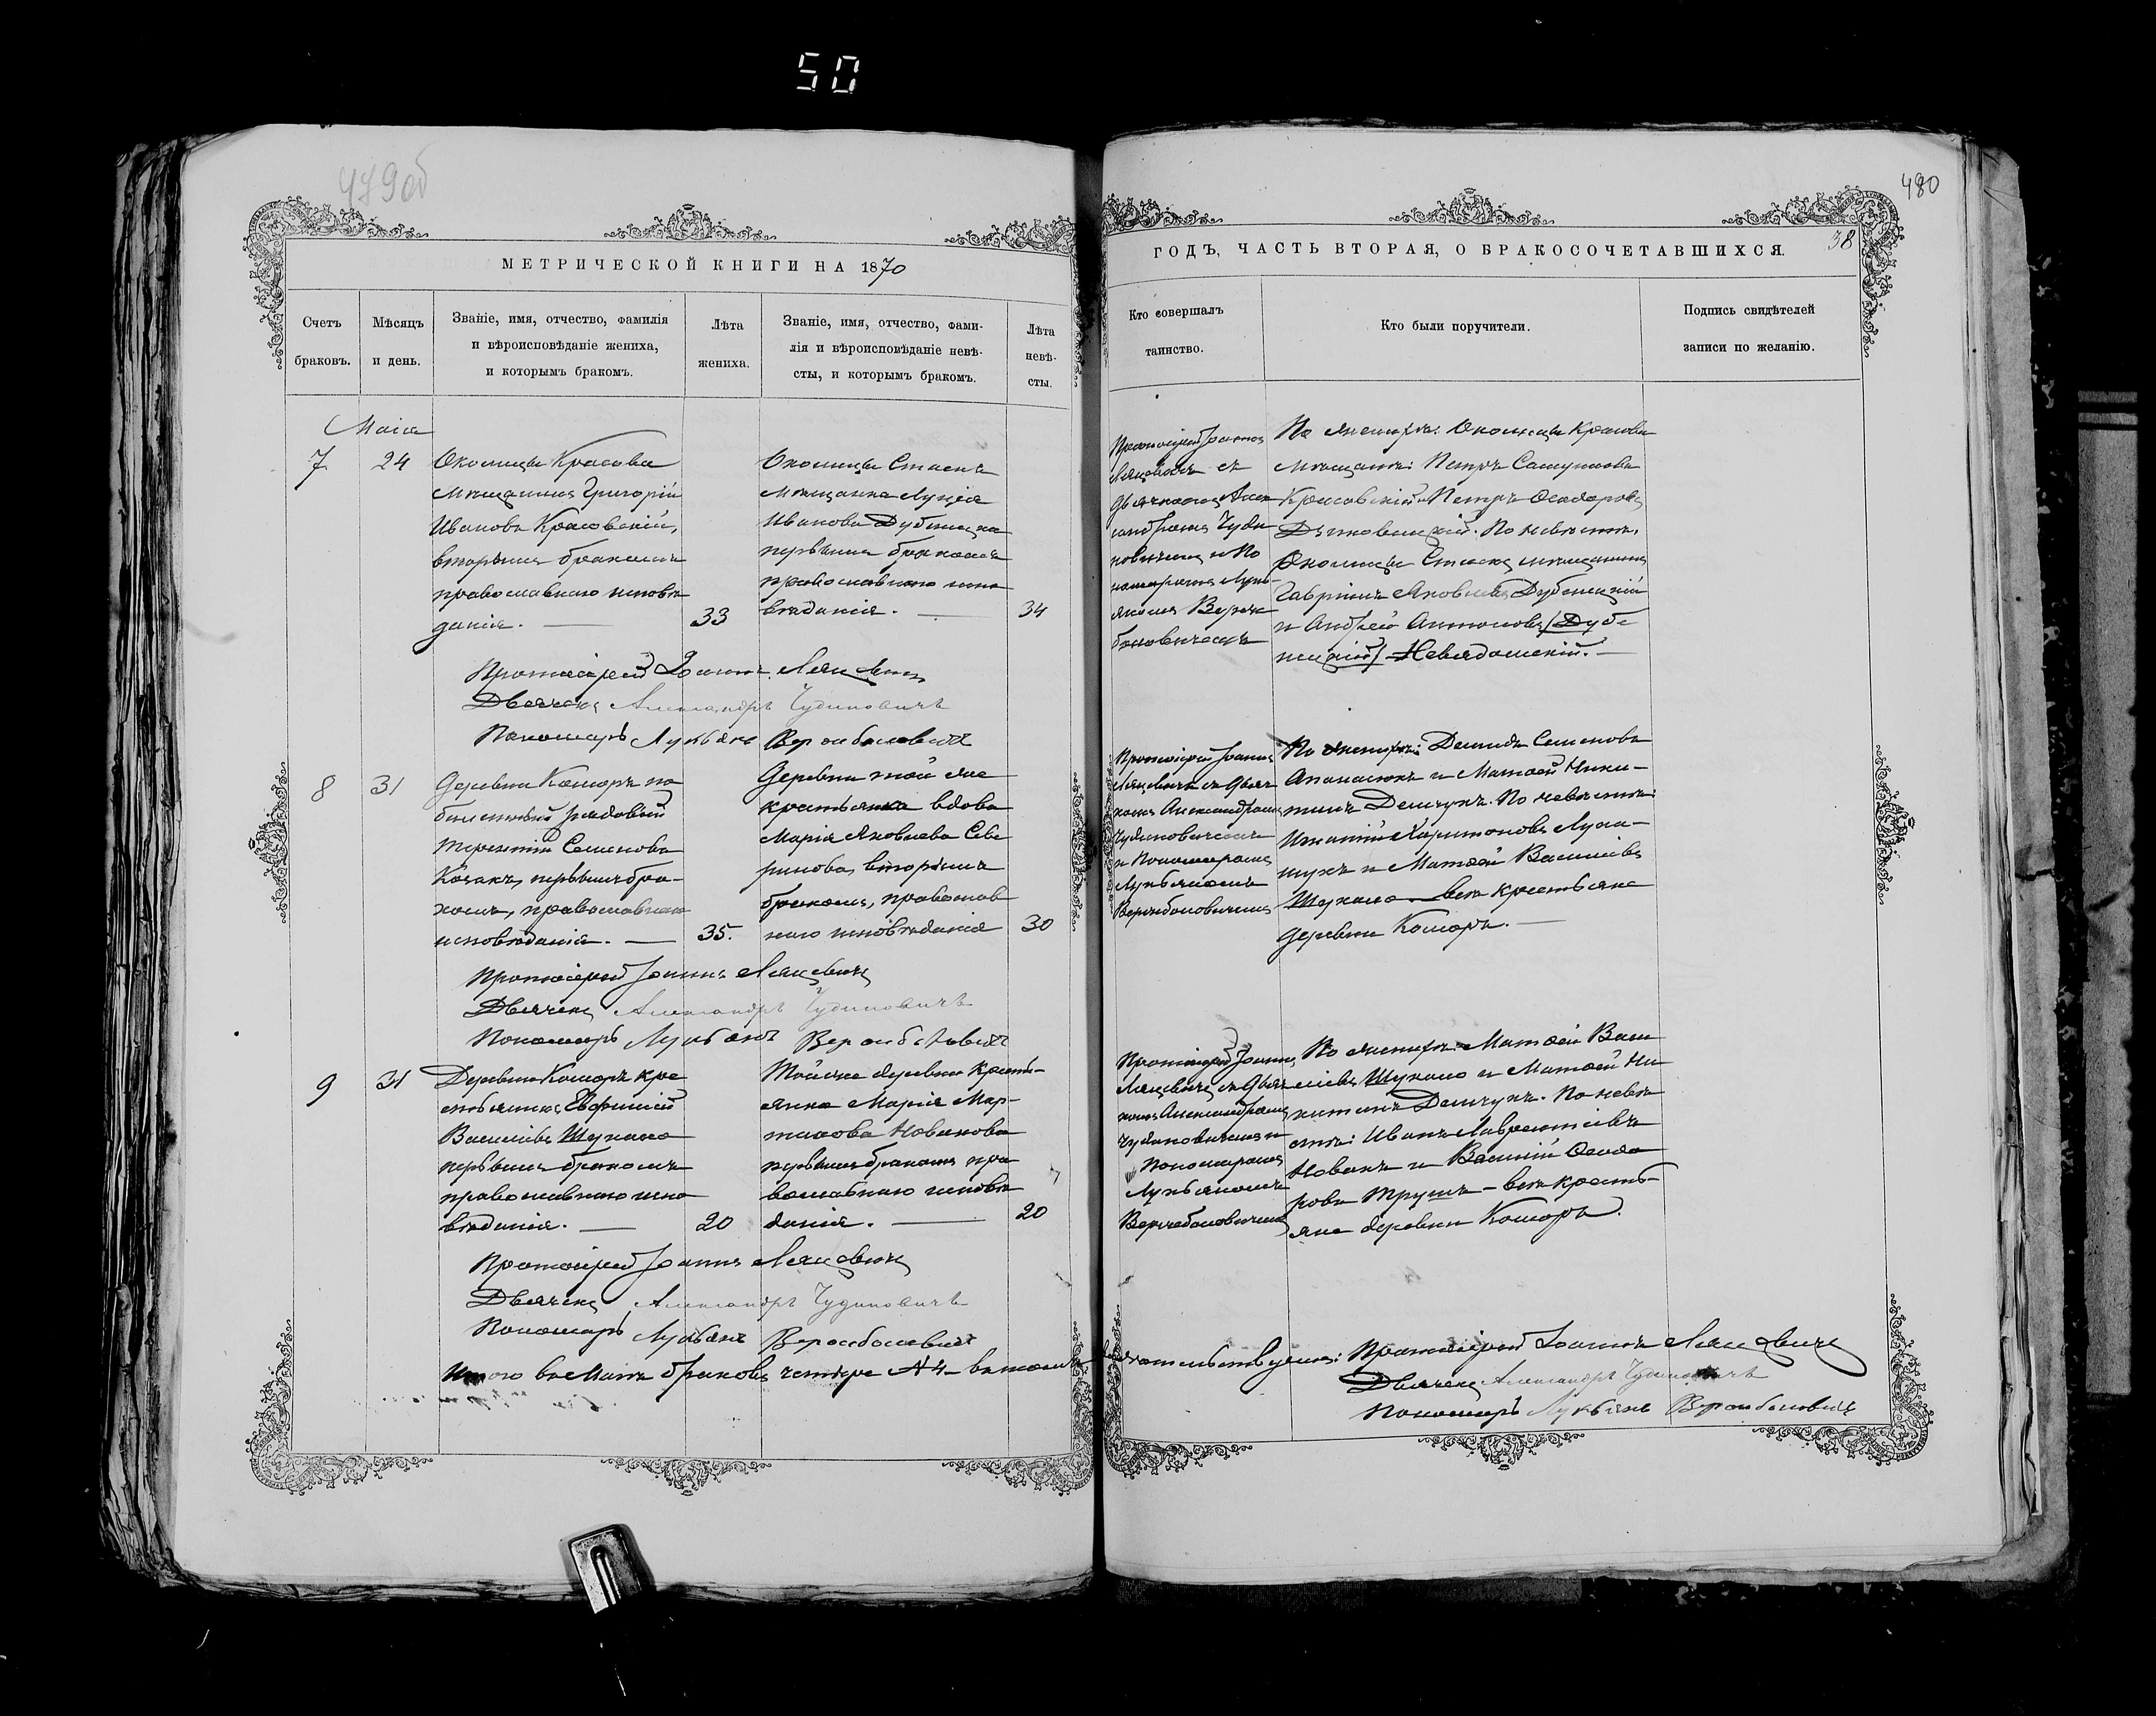 50
479об
480
38
МЕТРИЧЕСКОЙ КНИГИ НА 1870
ГОДЪ, ЧАСТЬ ВТОРАЯ, О БРАКОСОЧЕТАВШИХСЯ.
Счетъ
браковъ.
Мѣсяцъ
и день.
Званіе, имя, отчество, фамилія
и вѣроисповѣданіе жениха,
и которымъ бракомъ.
Лѣта
жениха.
Званіе, имя, отчество, фами-
лія и вѣроисповѣданіе невѣ-
сты, и которымъ бракомъ.
Лѣта
невѣ-
сты.
Кто совершалъ
таинство.
Кто были поручители.
Подпись свидѣтелей
записи по желанію.
Маія
7.
24
Околицы Красова
мѣщанинъ Григорій
Ивановъ Красовскій,
вторымъ бракомъ
православнаго исповѣ
данія.
33
Околицы
мѣщанка Луція
Иванова Дубницка
первымъ бракомъ
православнаго испо
вѣданія.
34
Протоіерей Іоаннъ
Ляцевичъ съ
Дьячкомъ Алек
сандромъ Чуди
новичемъ и По
номаремъ Лукь-
яномъ
По женихѣ: Околицы Красова
мѣщане: Петръ
Красовскій и Петръ Ѳеодоровъ
По невѣстѣ,
Околицы мѣщанинъ
Гавріилъ Яковлевъ Дубницкій
и Андрей Антоновъ /Дуб
ницкій/ Невядомскій.
Протоіерей Іоаннъ Ляцевичъ
Дьячекъ Александръ Чудиновичъ
Пономарь Лукьянъ
8
31
Деревни Коморъ
рядовый
Терентій Семеновъ
Козакъ, первымъ бра-
комъ, православнаго
исповѣданія.
35.
Деревни той же
крестьянка вдова
Марія Яковлева Севе
ринова, вторымъ
бракомъ, православ
наго исповѣданія
30
Протоіерей Іоаннъ
Ляцевичъ съ Дьяч
комъ Александромъ
Чудиновичемъ
и Пономаремъ
Лукьяномъ
По женихѣ: Демидъ Семеновъ
Апанасюкъ и Матѳей Ники-
тинъ Демчукъ. По невѣстѣ:
Игнатій Харитоновъ Лука-
шукъ и Матѳей Васильевъ
Шукало – всѣ крестьяне
деревни Коморъ.
Протоіерей Іоаннъ Ляцевичъ
Дьячекъ Александръ Чудиновичъ
Пономарь Лукьянъ
9
31
Деревни Коморъ кре
стьянинъ Евфимій
Васильевъ Шукало
первымъ бракомъ
православнаго испо
вѣданія.
20
Той же деревни кресть-
янка Марія Мар-
тинова Новакова
первымъ бракомъ пра
вославнаго исповѣ
данія.
20
Протоіерей Іоаннъ
Ляцевичъ съ Дьяч
комъ Александромъ
Чудиновичемъ и
Пономаремъ
Лукьяномъ
По женихѣ: Матѳей Васи
льевъ Шукало и Матѳей Ни
китинъ Демчукъ. По невѣ
стѣ: Иванъ Лаврентіевъ
Новакъ и Василій Ѳеодо
ровъ – всѣ кресть-
яне деревни Коморъ.
Протоіерей Іоаннъ Ляцевичъ
Дьячекъ Александръ Чудиновичъ
Пономарь Лукьянъ
Итого въ Маіѣ браковъ четыре №4 – въ томъ свидѣтельствуемъ: Протоіерей Іоаннъ Ляцевичъ
Дьячекъ Александръ Чудиновичъ
Пономарь Лукьянъ